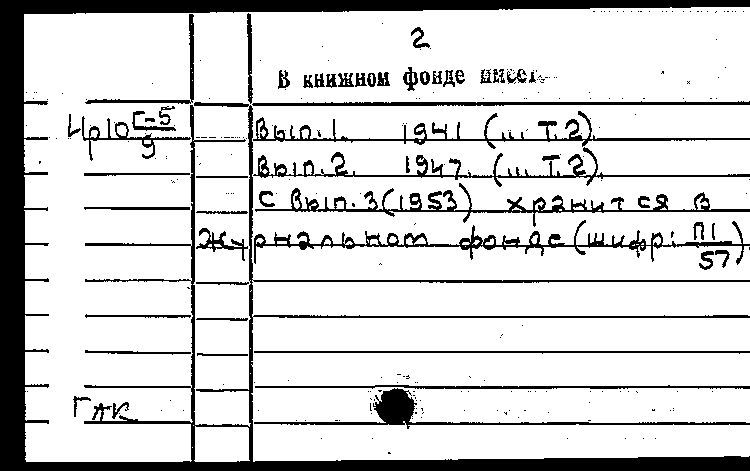 2
В книжном фонде имеет
Цр10 Г-5/9 Вып. 1. 1941 (... Т.2).
Вып. 2. 1947. (... Т.2).
С Вып. 3 (1953) хранится в
журнальном фонде (шифр: П1/57)
ГАК